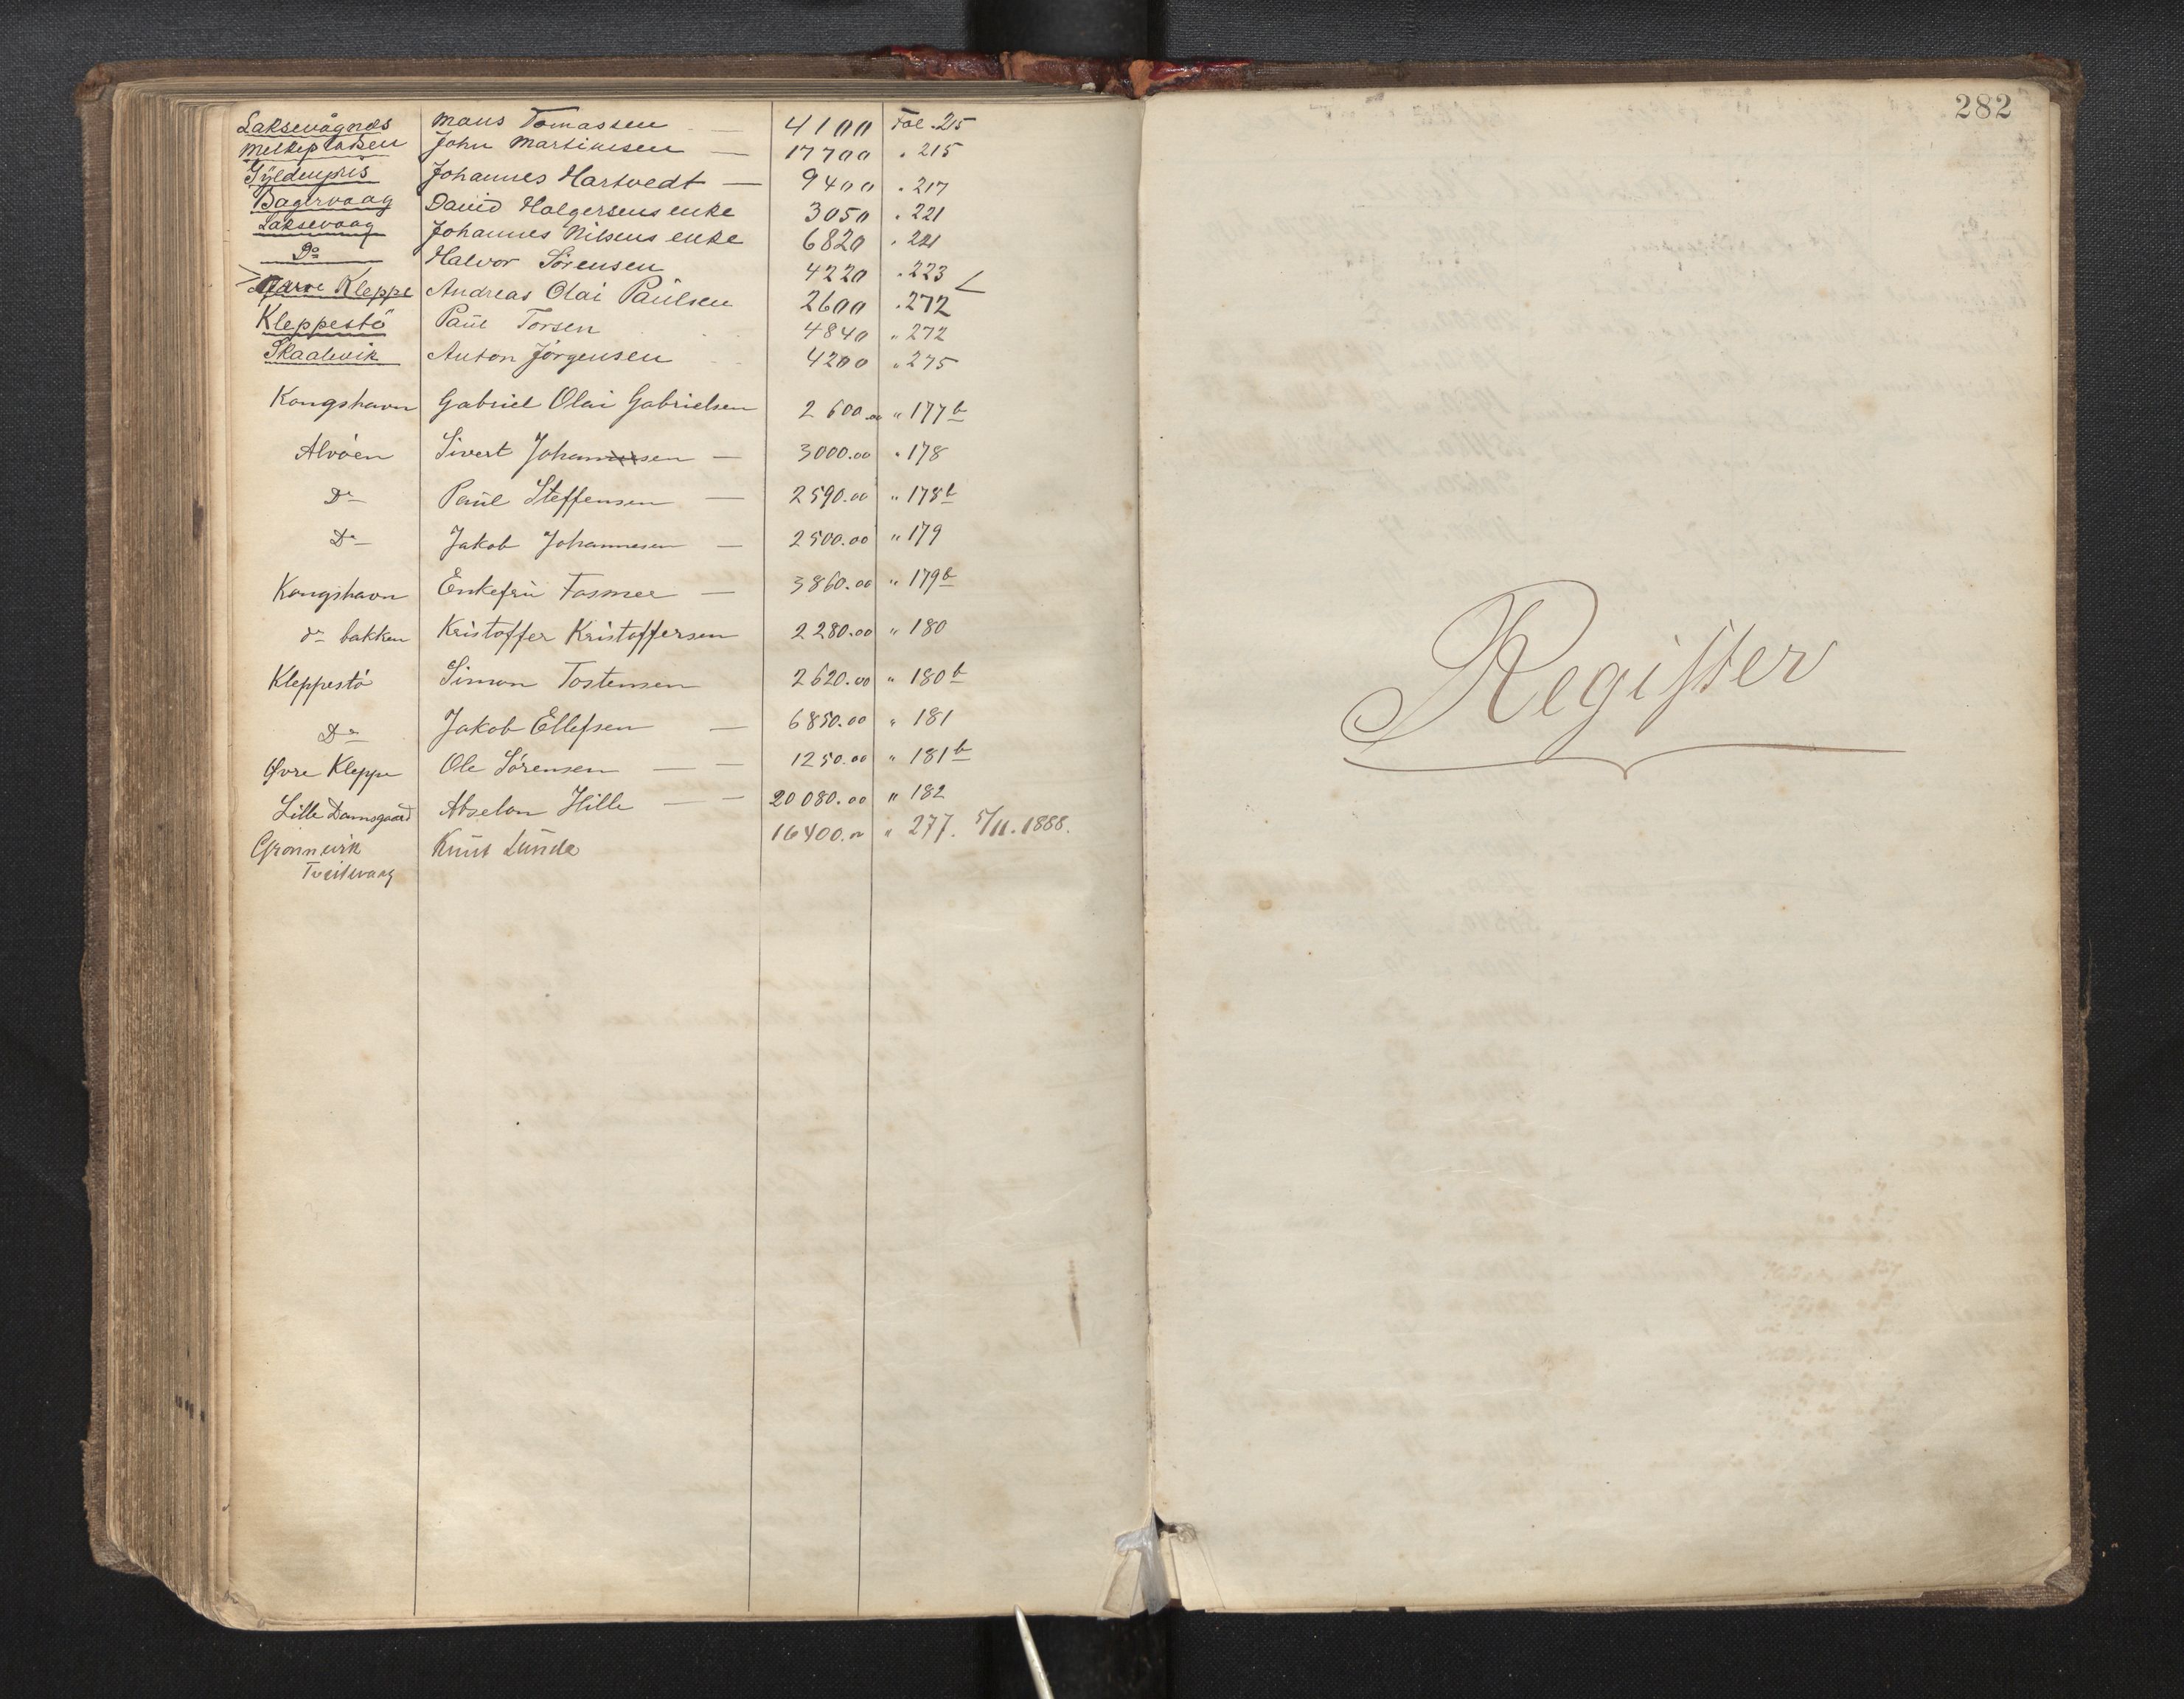 Laksevågnæs Mons Tomassen — 4100 Fol. 215
Melkeplatsen John Martinusen — 17700 " 215
Gyldenpris Johannes Hartvedt — 9400 " 217
Bagervaag David Holgersens enke 3050 " 221
Laksevaag Johannes Nilsens enke 6820 " 221
Do Halvor Sörensen 4220 " 223
Kleppe Andreas Olai Paulsen 2600 " 272
Kleppestö Paul Torsen 4840 " 272
Skaalevik Anton Jörgensen 4200 " 275
Kongshavn Gabriel Olai Gabrielsen 2600.00 " 177b
Alvöen Sivert Johannessen — 3000.00 " 178
Do Paul Steffensen — 2590.00 " 178b
Do Jakob Johannesen — 2500.00 " 179
Kongshavn Enkefru Fasmer — 3860.00 " 179b
do bakken Kristoffer Kristoffersen 2280.00 " 180
Kleppestö Simon Tostensen 2620.00 " 180b
Do Jakob Ellefsen — 6850.00 " 181
Øvre Kleppe Ole Sörensen — — 1250.00 " 181b
Lille Damsgaard Abselon Hille — — 20080.00 " 182
Grönnevik Knut Lunde 16400.00 " 277. 5/11. 1888.
Tveitevaag
282
Register